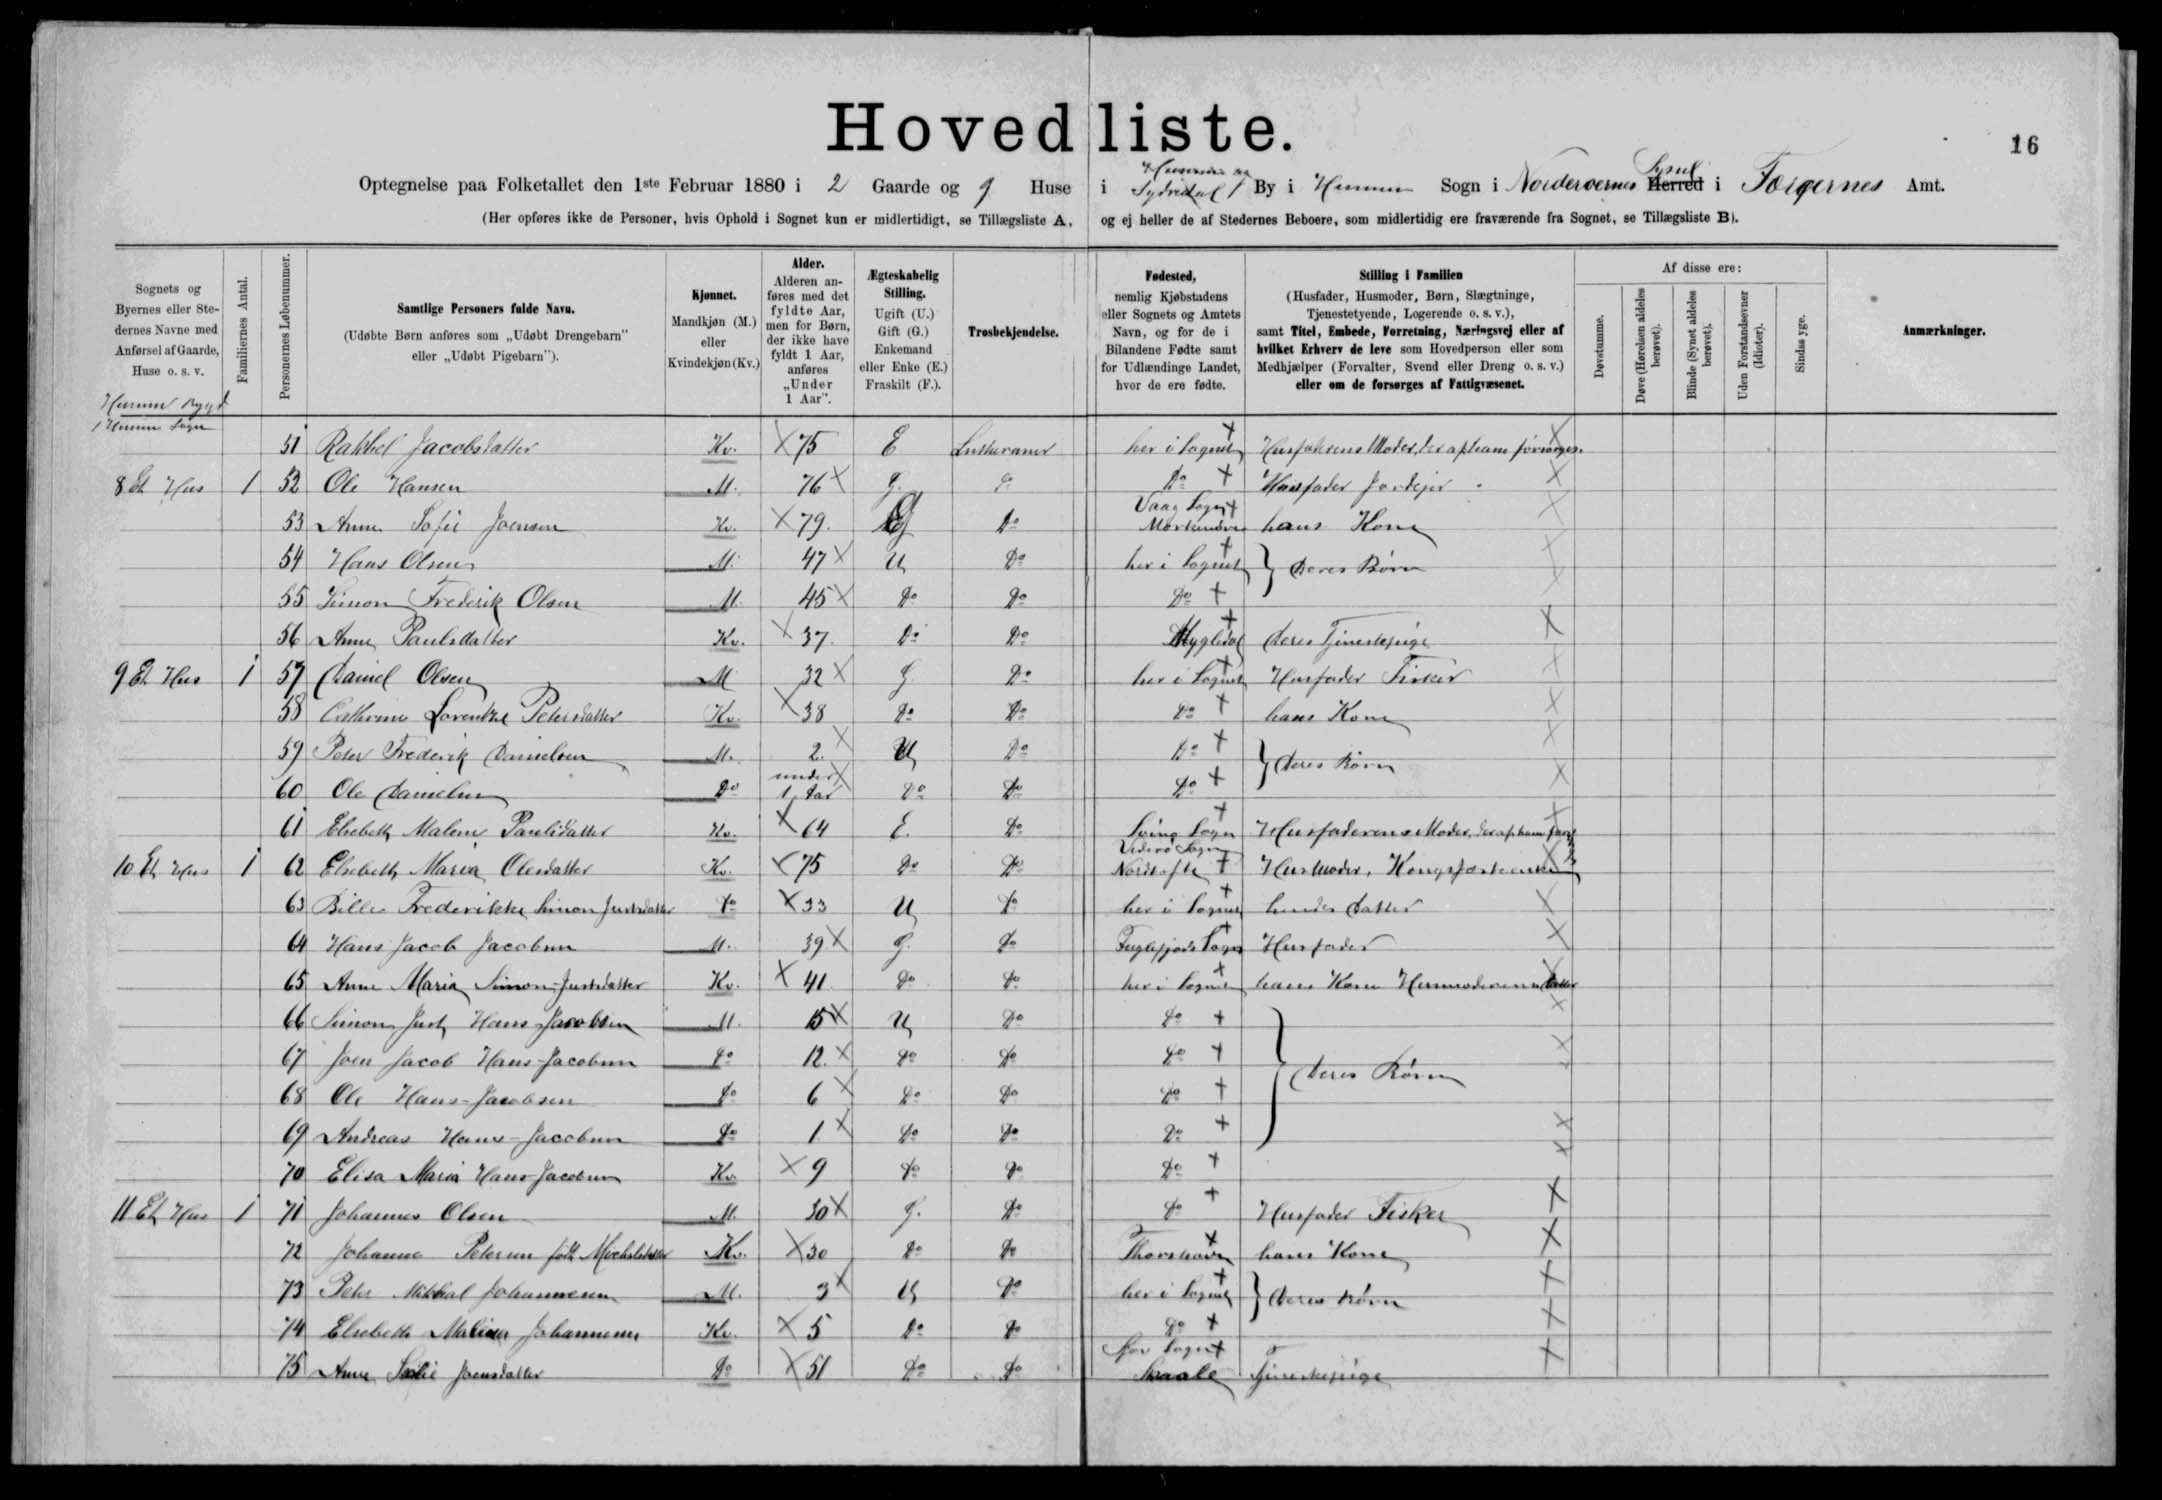 Hovedliste.
16
Optegnelse paa Folketallet den 1ste Februar 1880 i 2 Gaarde og 9 Huse i Husum og Sydredal By i Husum Sogn i Norderoernes Syssel Herred i Færøernes Amt.
(Her opføres ikke de Personer, hvis Ophold i Sognet kun er midlertidigt, se Tillægsliste A, og ej heller de af Stedernes Beboere, som midlertidig ere fraværende fra Sognet, se Tillægsliste B).
Sognets og Byernes eller Stedernes Navne med Anførsel af Gaarde, Huse o. s. v.
Familiernes Antal.
Personernes Løbenummer.
Samtlige Personers fulde Navn.
(Udøbte Børn anføres som „Udøbt Drengebarn" eller „Udøbt Pigebarn").
Kjønnet.
Mandkjøn (M.) eller Kvindekjøn (Kv.)
Alder.
Alderen anføres med det fyldte Aar, men for Børn, der ikke have fyldt 1 Aar, anføres „Under 1 Aar".
Ægteskabelig Stilling.
Ugift (U.) Gift (G.) Enkemand eller Enke (E.) Fraskilt (F.).
Trosbekjendelse.
Fødested,
nemlig Kjøbstadens eller Sognets og Amtets Navn, og for de i Bilandene Fødte samt for Udlændinge Landet, hvor de ere fødte.
Stilling i Familien
(Husfader, Husmoder, Børn, Slægtninge, Tjenestetyende, Logerende o. s. v.), samt Titel, Embede, Forretning, Næringsvej eller af hvilket Erhverv de leve som Hovedperson eller som Medhjælper (Forvalter, Svend eller Dreng o. s. v.) eller om de forsørges af Fattigvæsenet.
Af disse ere:
Døvstumme.
Døve (Hørelsen aldeles berøvet).
Blinde (Synet aldeles berøvet).
Uden Forstandsevner (Idioter).
Sindssyge.
Anmærkninger.
Husum Bygd
Husum Sogn
51 Rakkel Jacobsdatter Kv. 75 E Lutheraner her i Sognet Husfaderens Moder, der af ham forsørges.
8 Et Hus 1 52 Ole Hansen M. 76 G. Do Do Husfader Jordejer
53 Anne Sofie Joensen Kv. 79. G Do Vaag Sogn hans Kone
54 Hans Olsen M. 47 U Do her i Sognet } deres Børn
55 Simon Frederik Olsen M. 45 Do Do Do
56 Anne Paulsdatter Kv. 37. Do Do deres Tjenestepige
9 Et Hus 1 57 Daniel Olsen M 32 G. Do her i Sognet Husfader Fisker
58 Cathrine Sorentze Petersdatter Kv. 38 Do Do Do hans Kone
59 Peter Frederik Danielsen M. 2. U Do Do } deres Børn
60 Ole Danielsen Do under 1 Aar Do Do Do
61 Elsebeth Malene Paulsdatter Kv. 64 E. Do Sogn Husfaderens Moder, der af ham fors
10 Et Hus 1 62 Elsebeth Maria Olesdatter Kv. 75 Do Do Viderø Sogn Nordtofte Husmoder, Kongsfæsteenke
63 Bille Frederikke Simon Justsdatter Do 33 U Do her i Sognet hendes Datter
64 Hans Jacob Jacobsen M. 39 G. Do Fuglefjords Sogn Husfader
65 Anne Maria Simon-Justsdatter Kv. 41 Do Do her i Sognet hans Kone Husmoderens Datter
66 Simon Just Hans-Jacobsen M. 15 U Do Do
67 Joen Jacob Hans-Jacobsen Do 12. Do Do Do } deres Børn
68 Ole Hans-Jacobsen Do 6 Do Do Do
69 Andreas Hans-Jacobsen Do 1. Do Do Do
70 Elisa Maria Hans-Jacobsen Kv. 9 Do Do Do
11 Et Hus 1 71 Johannes Olsen M. 30 G. Do Do Husfader Fisker
72 Johanne Petersen født Kv. 30 Do Do Thorshavn hans Kone
73 Peter Mikkal Johannesen M. 3 U Do her i Sognet } deres Børn
74 Elsebeth Malene Johannesen Kv. 5 Do Do Do
75 Anne Sofie Joensdatter Do 51 Do Do Sogn Skaale Tjenestepige